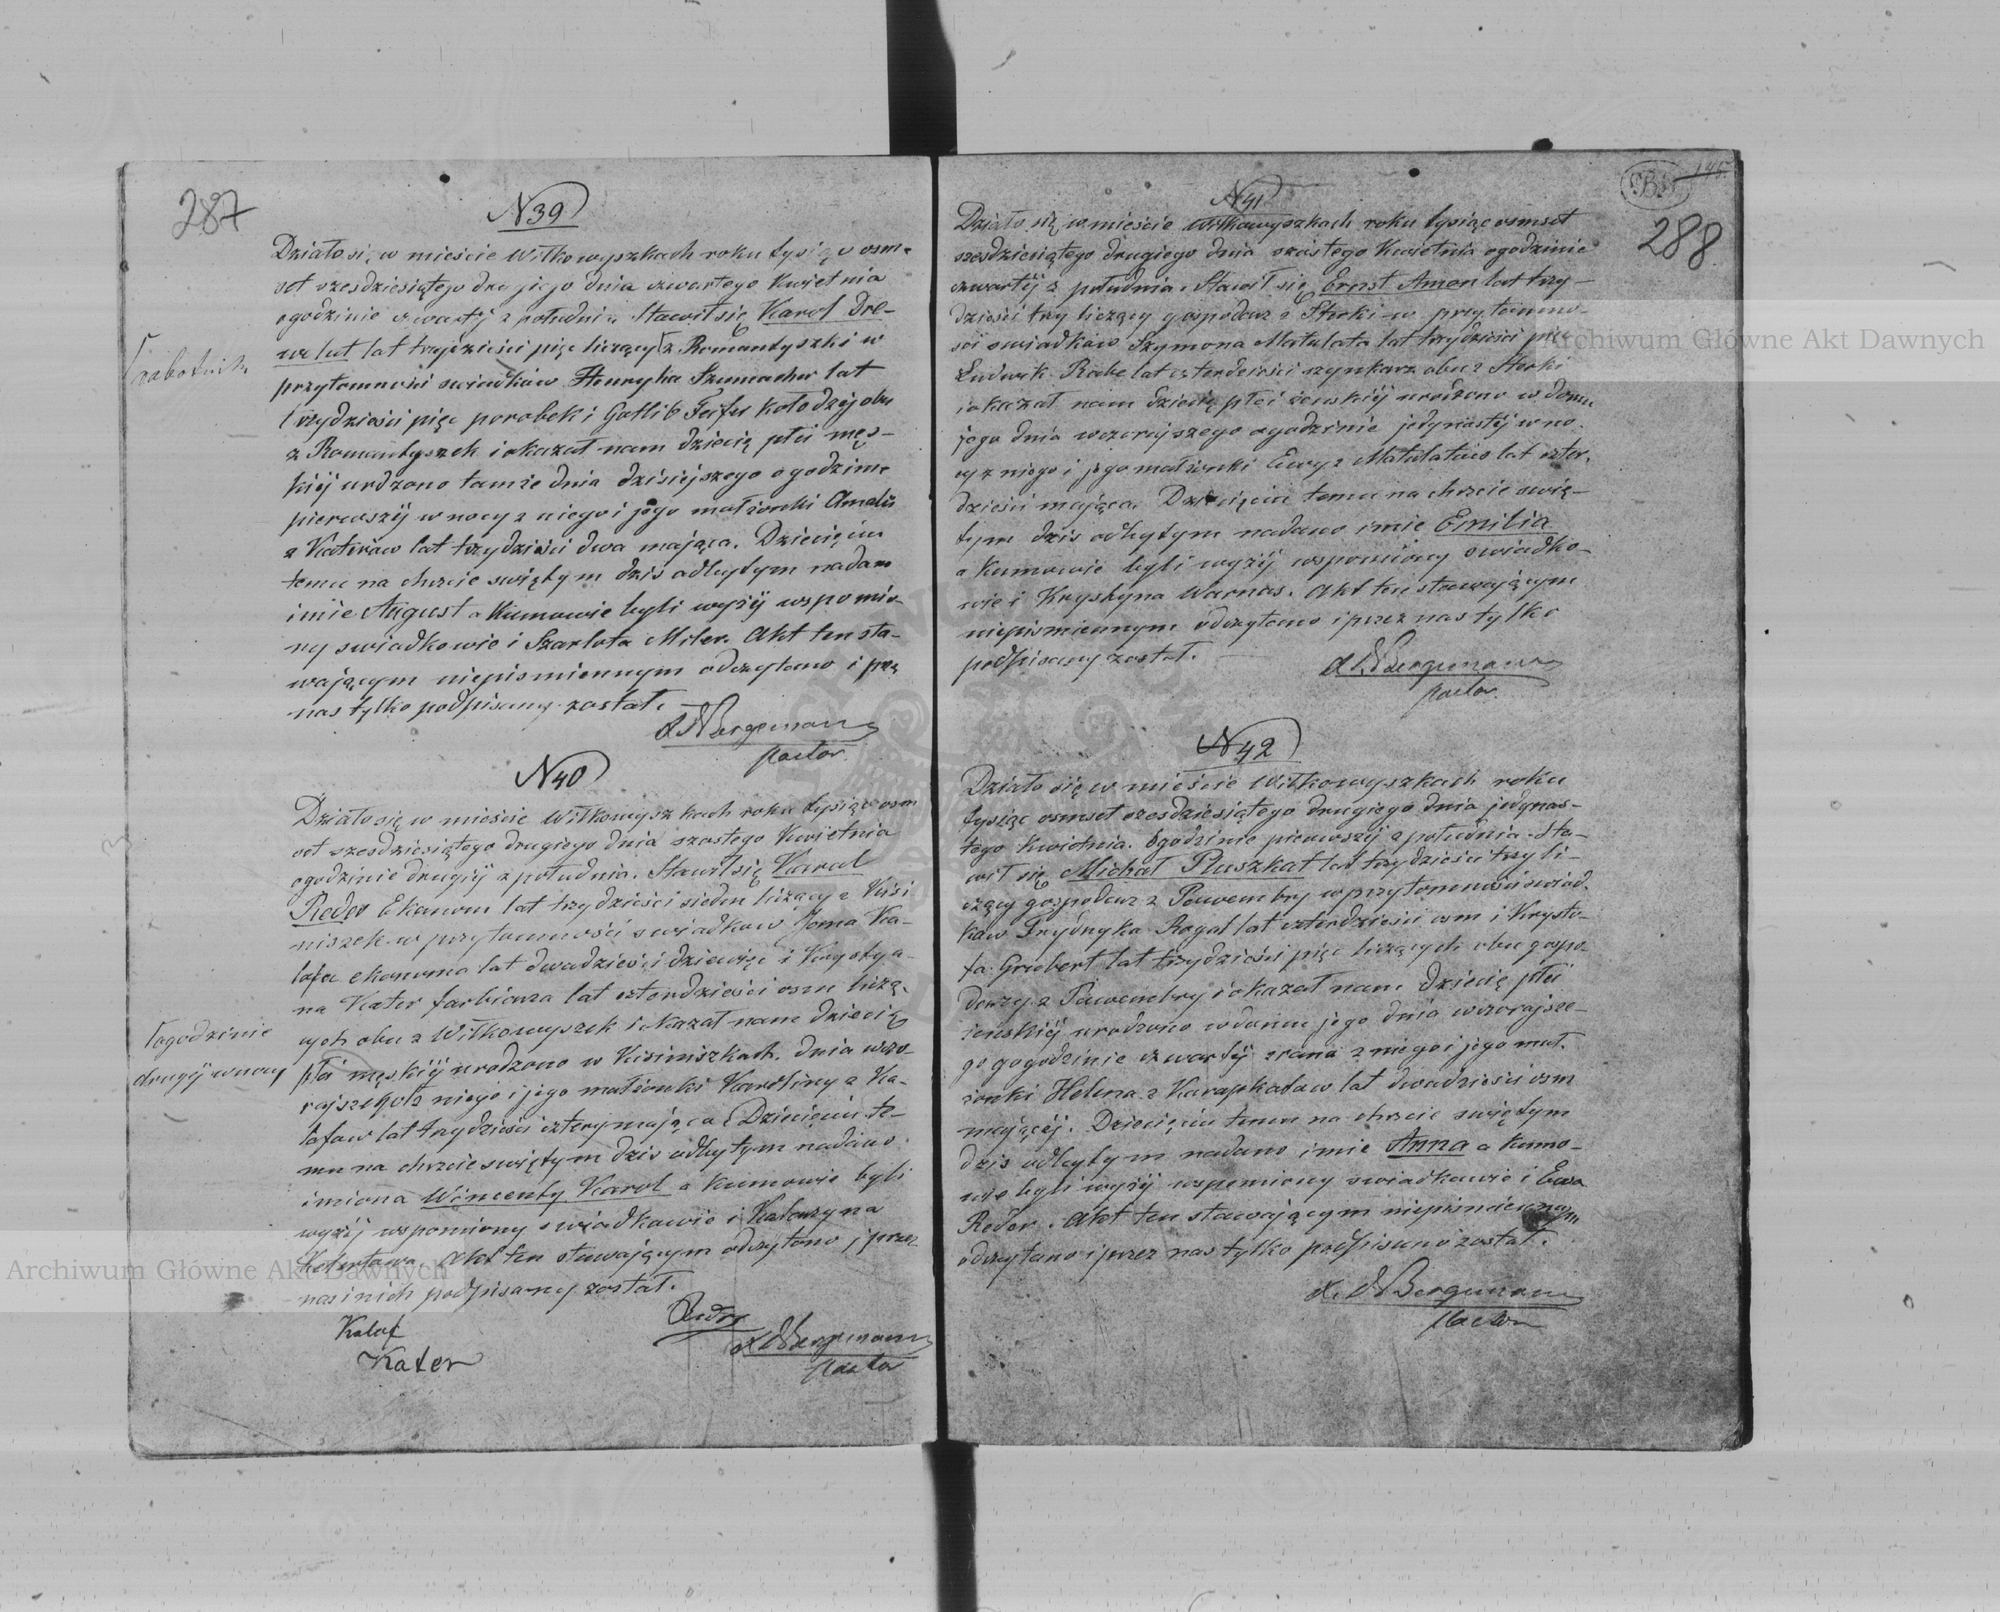 287
N 39
Działo się w mieście Wiłkowyszkach roku tysiąc osm-
set szesdziesiątego drugiego dnia czwartego Kwietnia
ogodzinie czwartej z południa. Stawił się Karol Dre-
welut lat trzydzieści pięc liczący z Romantyszki w
przytomności swiadków Henryka Szumacher lat
trzydzieści pięc porobek i Gotlib Feifer kołodzéj obu
z Romantyszek i okazał nam dziecię płci męs-
kiéj urodzono tamże dnia dzisiejszego ogodzinie
pierwszéj w nocy z niego i jego małżonki Amelii
z Katerów lat trzydzieści dwa mająca. Dziecięciu
temu na chrzcie swiętym dzis odbytym nadano
imie August a Kumowie byli wyżéj wspomio-
ny swiadkowie i Szarlota Miler. Akt ten sta-
wającym niepismiennym odczytano i prze
nas tylko podpisany został.
Bergemann
pastor
N 40
Działo się w mieście Wiłkowyszkach roku tysiąc osm
set szesdziesiątego drugiego dnia szostego Kwietnia
ogodzinie drugiéj z południa. Stawił się Karol
Reder Ekonom lat trzydzieści siedm liczący z Kisi
niszek w przytomności swiadkow Jona Ka-
lafa ekonoma lat dwadzieści dziewięc i Krystya-
na Kater farbiarza lat czterdzieści osm liczą-
ych obu z Wiłkowyszek i okazał nam dziecię
płci męskiéj urodzono w Kisiniszkach. dnia wczo-
ogodzinie
drugiéj w nocy
rajszego z niego i jego małżonki Karoliny z Ka-
lafow lat trzydzieści cztery mająca Dziecięciu te-
mu na chrzcie swiętym dzis odbytym nadano
imiona Wincenty Karol a Kumowie byli
wyżéj wspomiony swiadkowie i Katarzyna
Akt ten stawającym odczytano i przez
nas i nich podpisany został.
Kalaf
Kater
Reder
Bergemann
pastor
288
N 41
Działo się w mieście Wiłkowyszkach roku tysiąc osmset
szesdziesiątego drugiego dnia szostego Kwietnia ogodzinie
czwartéj z południa. Stawił się Ernst Amon lat trzy-
dzieści try liczący gospodarz z Sterki w przytomno-
ści swiadków Szymona Matulata lat trzydzieści pięc
Ludwik Rabe lat czterdzieści szynkarz obu z Sterki
i okazał nam dziecię płci żeńskiéj urodzono w domu
jego dnia wczorajszego ogodzinie jedynastéj w no-
cy z niego i jego małżonki Ewy z Matulatów lat czter-
dzieści mająca. Dziecięciu temu na chrzcie swię-
tym dzis odbytym nadano imie Emilia
a Kumowie byli wyżéj wspomiony swiadko-
wie i Krystyna Warnas. Akt ten stawającym
niepismiennym odczytano i przez nas tylko
podpisany został.
Bergemann
pastor
N 42
Działo się w mieście Wiłkowyszkach roku
tysiąc osmset szesdziesiątego drugiego dnia jedynas-
tego Kwietnia. Ogodzinie pierwszéj z południa. Sta-
wił się Michał Pluszkat lat trzydzieści trzy li-
czący gospodarz z Powembry w przytomności swiad-
kow Frydryka Rogal lat czterdzieści osm i Krysto-
fa Grubert lat trzydzieści pięc liczących obu gospo-
darzy z Powembry i okazał nam dziecię płci
żenskiéj urodzono w domu jego dnia wczorajsze-
go ogodzinie czwartéj zrana z niego i jego mał-
żonki Helena z Karapkatow lat dwadzieści osm
mającéj. Dziecięciu temu na chrzcie swiętym
dzis odbytym nadano imie Anna a Kumo-
wie byli wyżéj wspomiony swiadkowie i Ewa
Reder. Akt ten stawającym niepismiennym
odczytano i przez nas tylko podpisano został.
Bergemann
pastor
Archiwum Główne Akt Dawnych
Archiwum Główne Akt Dawnych